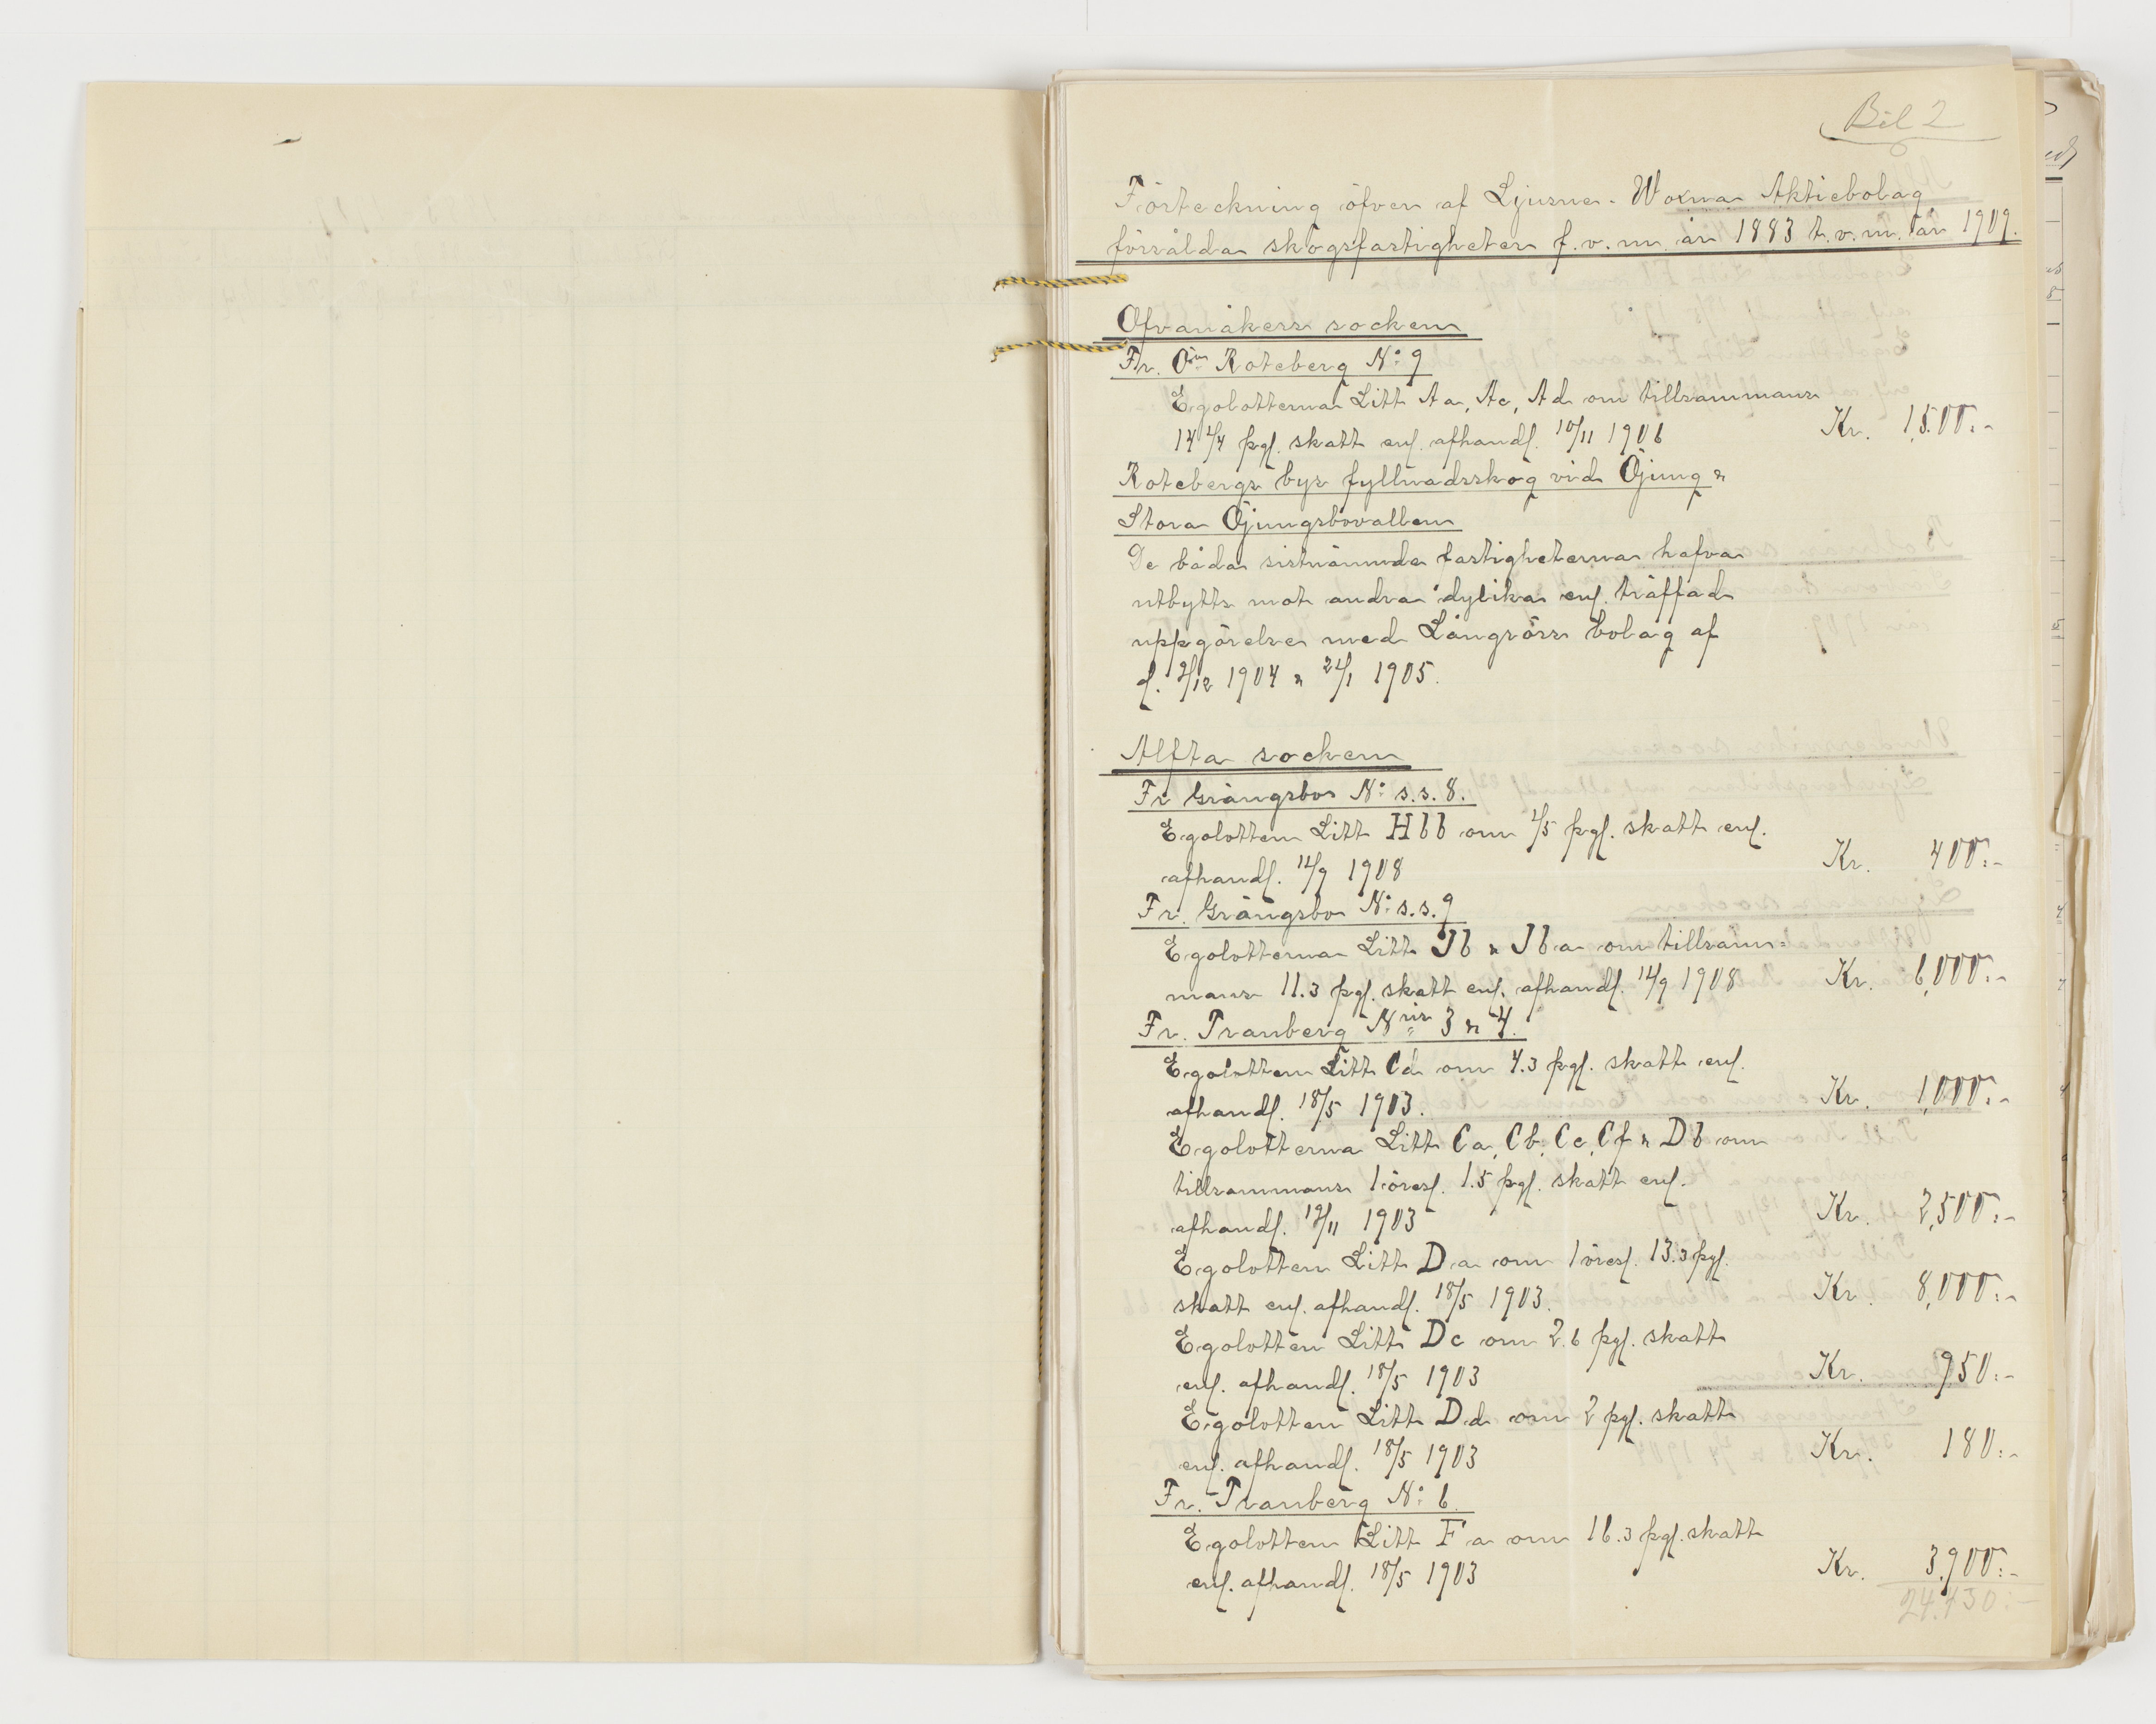 Bil 2
Förteckning öfver af Ljusne-Woxna Aktiebolag
försålda skogsfastigheter f.o.m. år 1883 t.o.m. år 1909.
Ofvanåkers socken
Fr. Öfre Roteberg No 9
Egolotterna Litt Aa, Ac, Ad om tillsammans
14 1/4 pgl. skatt enl. afhandl. 10/11 1906 Kr. 1,500:-
Rotebergs bys fyllnadsskog vid Öjung &
Stora Öjungsbovallen
De båda sistnämnda fastigheterna hafva
utbytts mot andra dylika enl. träffad
uppgörelse med Långrörs bolag af
d. 2/12 1904 & 21/1 1905.
Alfta socken
Fr Grängsbo No s.s. 8.
Egolotten Litt Hbb om 1/5 pgl. skatt enl.
afhandl. 14/9 1908 Kr. 400:-
Fr. Grängsbo No s.s. 9
Egolotterna Litt Jb & Jba om tillsam=
mans 11.3 pgl. skatt enl. afhandl. 14/9 1908 Kr. 6,000:-
Fr. Tranberg Nris 3 & 4.
Egolotten Litt Cd om 4.3 pgl. skatt enl.
afhandl. 18/5 1903. Kr. 1,000:-
Egolotterna Litt Ca, Cb, Cc, Cf & Db om
tillsammans 1 öresl. 1.5 pgl. skatt enl.
afhandl. 19/11 1903 Kr. 2,500:-
Egolotten Litt Da om 1 öresl. 13.3 pgl.
skatt enl. afhandl. 18/5 1903. Kr. 8,000:-
Egolotten Litt Dc om 2.6 pgl. skatt
enl. afhandl. 18/5 1903 Kr. 950:-
Egolotten Litt Dd om 2 pgl. skatt
enl. afhandl. 18/5 1903 Kr. 180:-
Fr. Tranberg No 6.
Egolotten Litt Fa om 16.3 pgl. skatt
enl. afhandl. 18/5 1903 Kr. 3,900:-
24.430:-